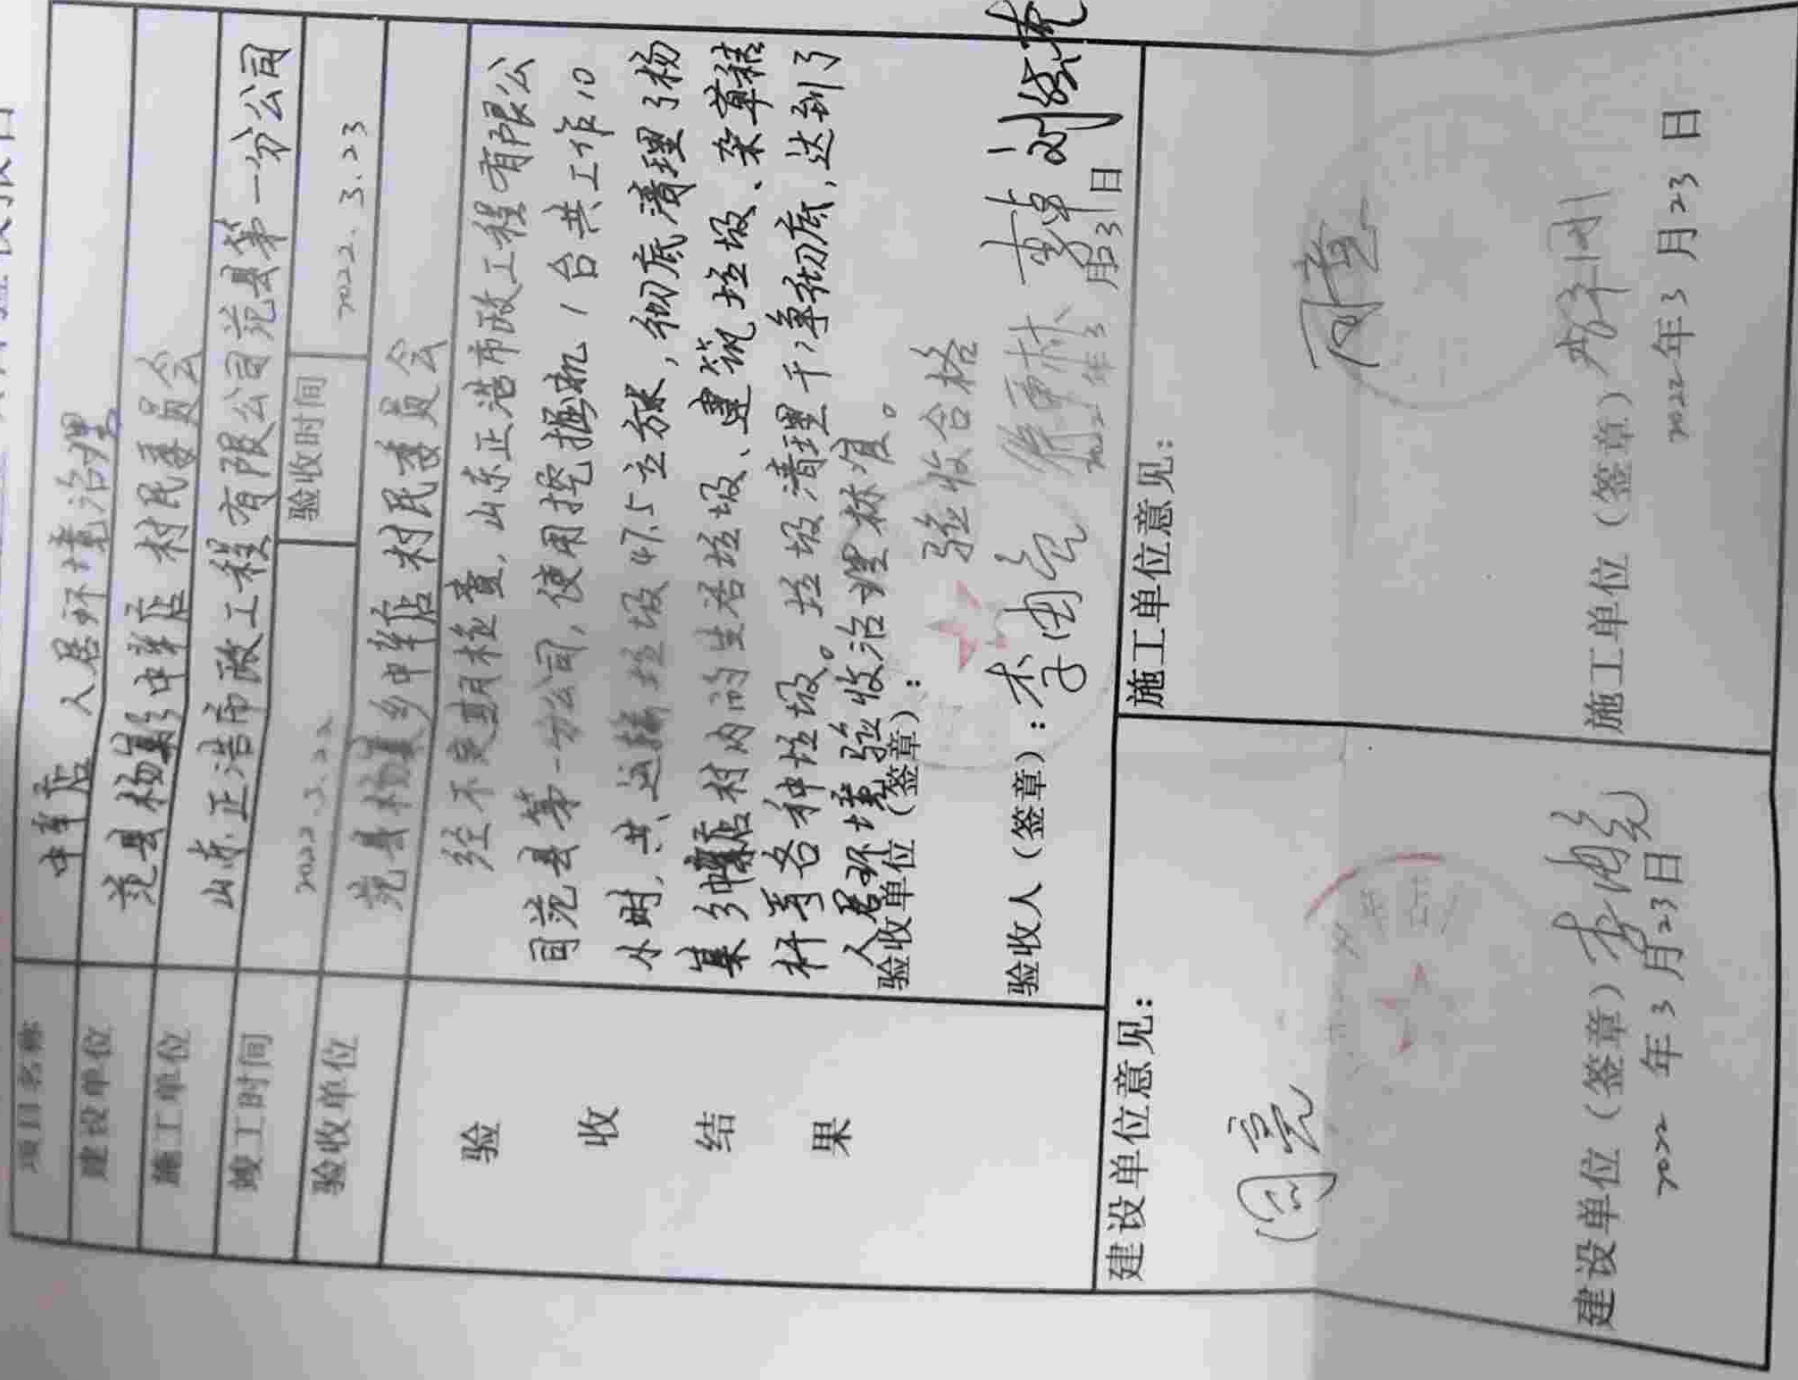 项目名称 中牟店 人居环境治理
建设单位 范县杨集乡中牟店村民委员会
施工单位 山东正浩市政工程有限公司范县第一分公司
竣工时间 2022.3.22 验收时间 2022.3.23
验收单位 范县杨集乡中牟店村民委员会
验收结果
经不定期检查,山东正浩市政工程有限公
司范县第一分公司,使用挖掘机1台共工作10
小时,共运输垃圾47.5立方米,彻底清理了杨
集乡中牟店村内的生活垃圾、建筑垃圾、杂草秸
秆等各种垃圾。垃圾清理干净彻底,达到了
人居环境验收治理标准。
验收单位(签章): 验收合格
验收人(签章):李
2022年3月23日
建设单位意见:
同意
建设单位(签章)李
2022年3月23日
施工单位意见:
同意
施工单位(签章)
2022年3月23日